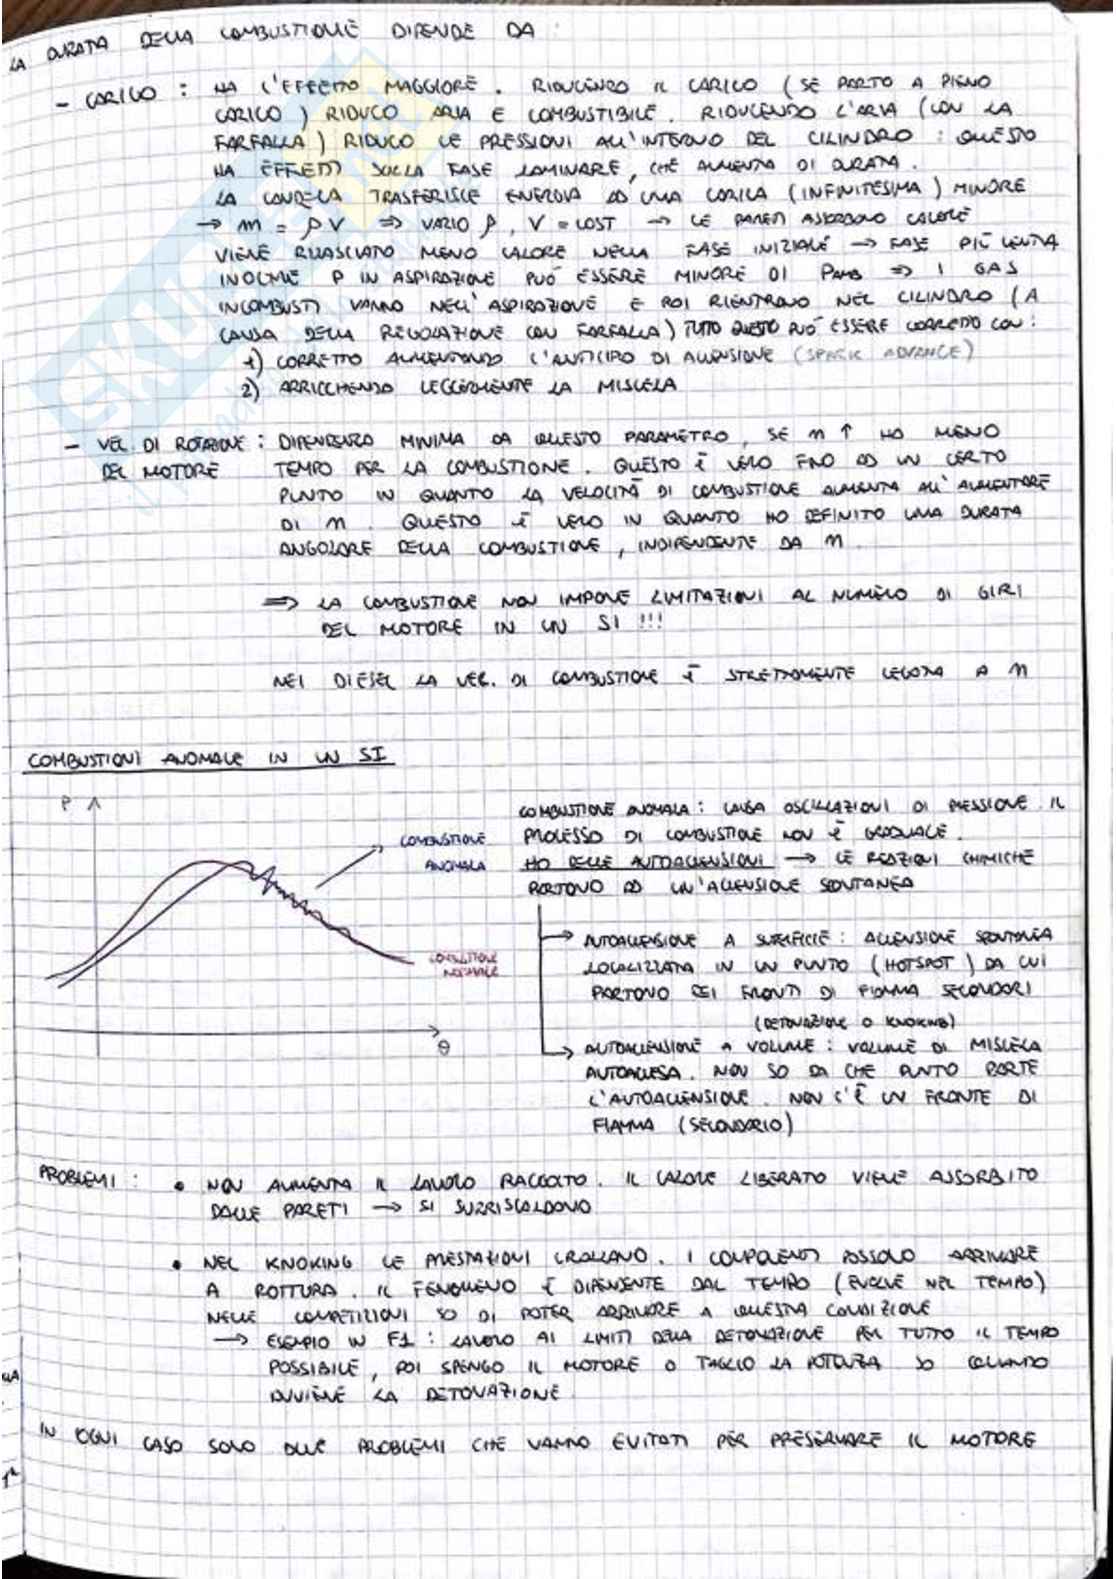 LA DURATA DELLA COMBUSTIONE DIPENDE DA :
- CARICO : HA L'EFFETTO MAGGIORE . RIDUCENDO IL CARICO ( SE PARTO A PIENO
CARICO ) RIDUCO ARIA E COMBUSTIBILE . RIDUCENDO L'ARIA ( CON LA
FARFALLA ) RIDUCO LE PRESSIONI ALL'INTERNO DEL CILINDRO : QUESTO
HA EFFETTI SULLA FASE LAMINARE , CHE AUMENTA DI DURATA .
LA CANDELA TRASFERISCE ENERGIA AD UNA CARICA ( INFINITESIMA ) MINORE
→ m = ρ V ⇒ VARIO ρ , V = COST → LE PARETI ASSORBONO CALORE
VIENE RILASCIATO MENO CALORE NELLA FASE INIZIALE → FASE PIÙ LENTA
INOLTRE P IN ASPIRAZIONE PUÒ ESSERE MINORE DI PAMB ⇒ I GAS
INCOMBUSTI VANNO NELL'ASPIRAZIONE E POI RIENTRANO NEL CILINDRO ( A
CAUSA DELLA REGOLAZIONE CON FARFALLA ) TUTTO QUESTO PUÒ ESSERE CORRETTO CON :
1) CORRETTO AUMENTANDO L'ANTICIPO DI ACCENSIONE ( SPARK ADVANCE )
2) ARRICCHENDO LEGGERMENTE LA MISCELA
- VEL. DI ROTAZIONE : DIPENDENZA MINIMA DA QUESTO PARAMETRO , SE n ↑ HO MENO
DEL MOTORE TEMPO PER LA COMBUSTIONE . QUESTO È VERO FINO AD UN CERTO
PUNTO IN QUANTO LA VELOCITÀ DI COMBUSTIONE AUMENTA ALL'AUMENTARE
DI n . QUESTO È VERO IN QUANTO HO DEFINITO UNA DURATA
ANGOLARE DELLA COMBUSTIONE , INDIPENDENTE DA n .
⇒ LA COMBUSTIONE NON IMPONE LIMITAZIONI AL NUMERO DI GIRI
DEL MOTORE IN UN SI !!!
NEI DIESEL LA VEL. DI COMBUSTIONE È STRETTAMENTE LEGATA A n
COMBUSTIONI ANOMALE IN UN SI
P
COMBUSTIONE
ANOMALA
COMBUSTIONE
NORMALE
θ
COMBUSTIONE ANOMALA : CAUSA OSCILLAZIONI DI PRESSIONE . IL
PROCESSO DI COMBUSTIONE NON È GRADUALE .
HO DELLE AUTOACCENSIONI → LE REAZIONI CHIMICHE
PORTANO AD UN'ACCENSIONE SPONTANEA
→ AUTOACCENSIONE A SUPERFICIE : ACCENSIONE SPONTANEA
LOCALIZZATA IN UN PUNTO ( HOTSPOT ) DA CUI
PARTONO DEI FRONTI DI FIAMMA SECONDARI
(DETONAZIONE O KNOKING)
→ AUTOACCENSIONE A VOLUME : VOLUME DI MISCELA
AUTOACCESA . NON SO DA CHE PUNTO PARTE
L'AUTOACCENSIONE . NON C'È UN FRONTE DI
FIAMMA ( SECONDARIO )
PROBLEMI : • NON AUMENTA IL LAVORO RACCOLTO . IL CALORE LIBERATO VIENE ASSORBITO
DALLE PARETI → SI SURRISCALDANO
• NEL KNOKING LE PRESTAZIONI CROLLANO . I COMPONENTI POSSONO ARRIVARE
A ROTTURA . IL FENOMENO È DIPENDENTE DAL TEMPO ( EVOLVE NEL TEMPO )
NELLE COMPETIZIONI SO DI POTER ARRIVARE A QUESTA CONDIZIONE
→ ESEMPIO IN F1 : LAVORO AI LIMITI DELLA DETONAZIONE PER TUTTO IL TEMPO
POSSIBILE , POI SPENGO IL MOTORE O TAGLIO LA POTENZA SO QUANDO
AVVIENE LA DETONAZIONE .
IN OGNI CASO SONO DUE PROBLEMI CHE VANNO EVITATI PER PRESERVARE IL MOTORE